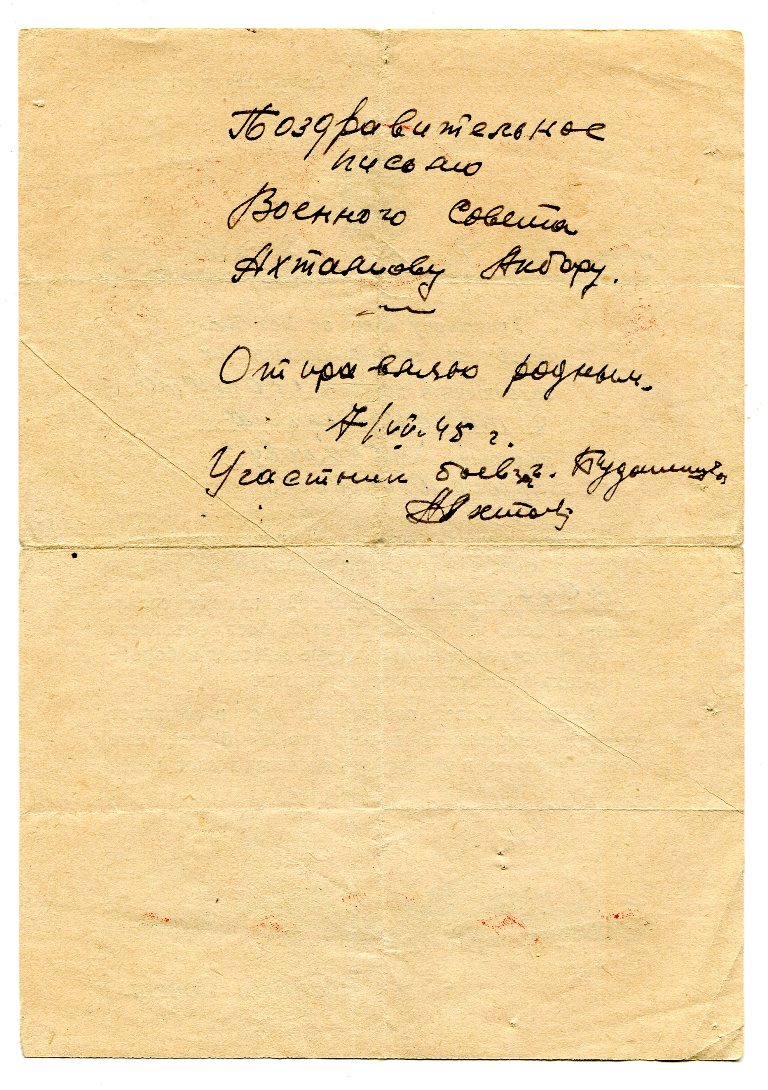 Поздравительное
письмо
Военного совета
Ахтямову Акбару.
Отправляю родным.
7/VII. 45 г.
Участник боев